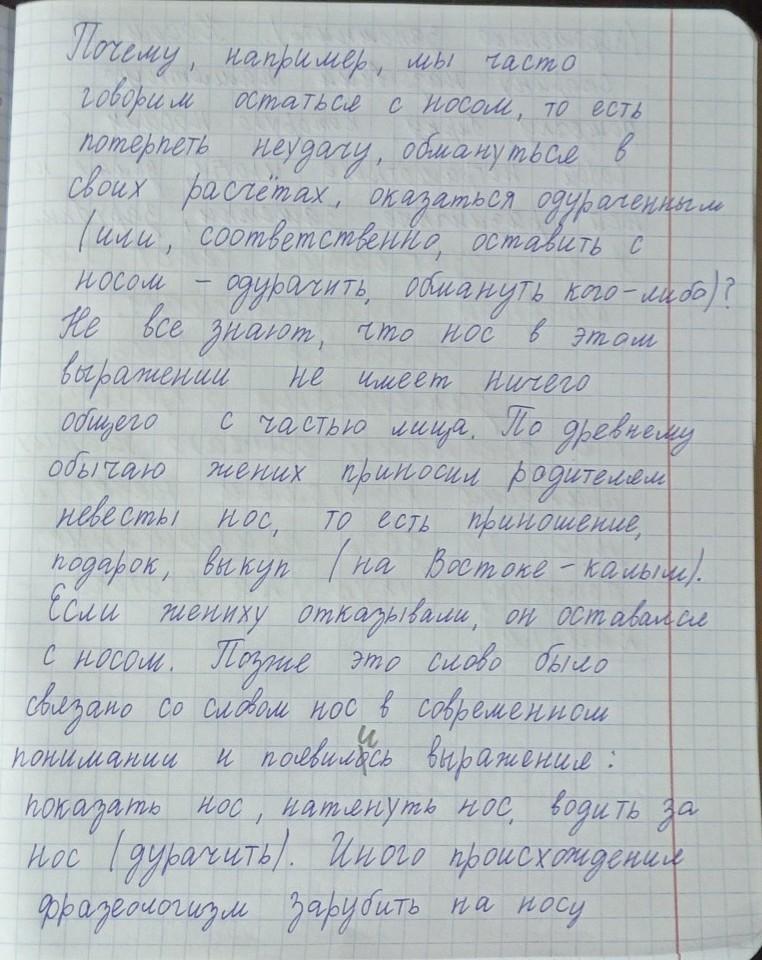 Почему, например, мы часто
говорим остаться с носом, то есть
потерпеть неудачу, обмануться в
своих расчётах, оказаться одураченным
(или, соответственно, оставить с
носом – одурачить, обмануть кого-либо)?
Не все знают, что нос в этом
выражении не имеет ничего
общего с частью лица. По древнему
обычаю жених приносил родителям
невесты нос, то есть приношение,
подарок, выкуп (на Востоке – калым).
Если жениху отказывали, он оставался
с носом. Позже это слово было
связано со словом нос в современном
понимании и появились выражения:
показать нос, натянуть нос, водить за
нос (дурачить). Иного происхождения
фразеологизм зарубить на носу